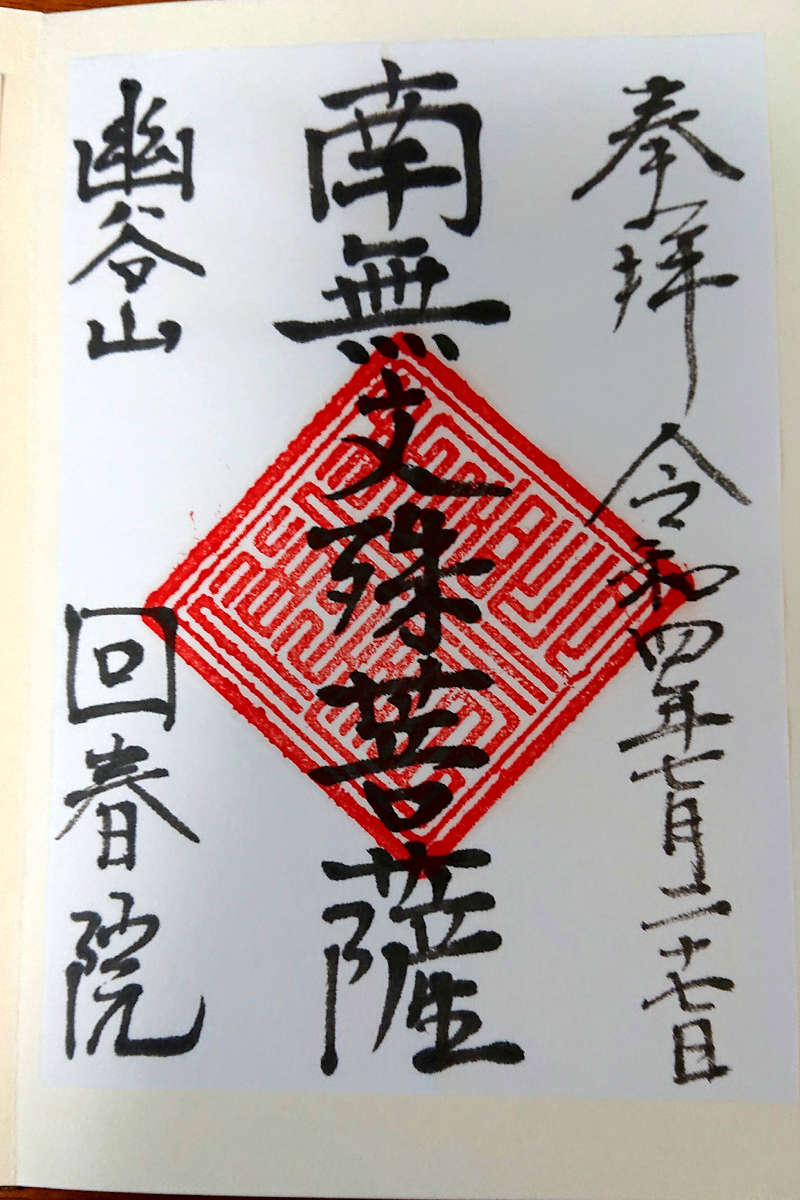 奉拝 令和四年七月二十七日
南無文殊菩薩
幽谷山 回春院